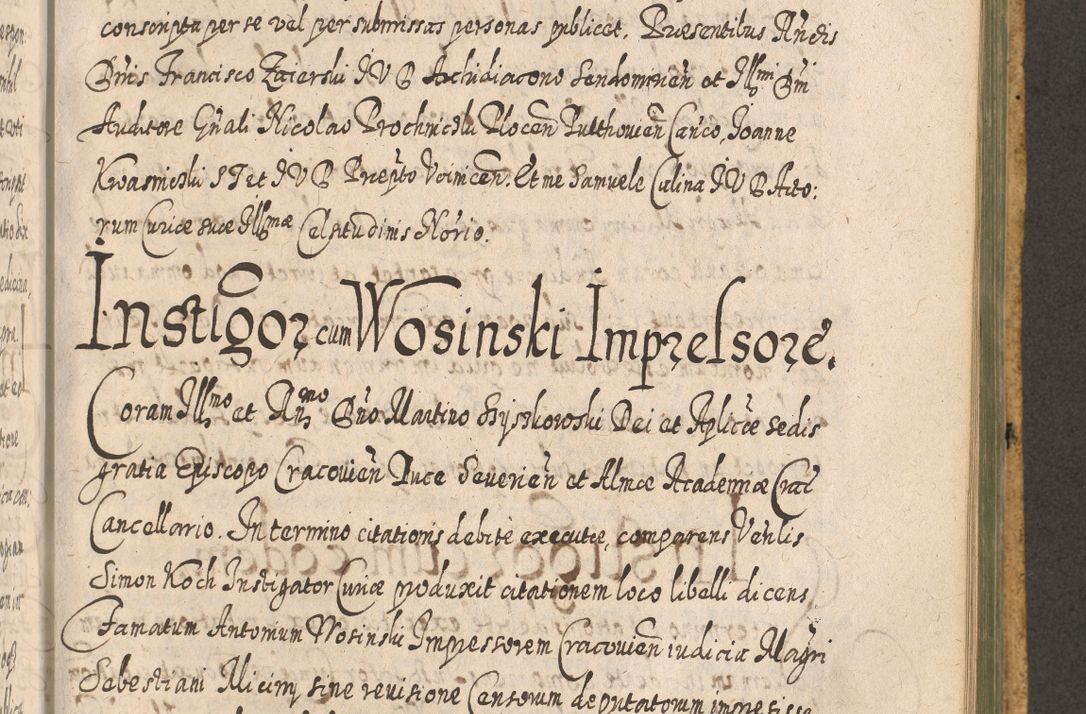 conscripta per se vel per submissas personas publicet. Præsentibus Andis
Dnis Francisco Zaierski IVD Archidiacono Sendomirien et Illmi Dni
Auditore Gnali Nicolao Prochnicski Plocen Pulthovien Canco, Joanne
Kwasnicski STet IVD Præpto Voinicen. Et me Samuele Culina IVD Acto:
rum Curiæ suæ Illmæ Celsitudinis Norio.
Instigor cum Wosinski Impressore.
Coram Illmo et Rnmo Dno Martino Szyszkowski Dei et Aplicæ sedis
gratia Episcopo Cracovien Duce Severien et Almæ Academiæ Crac
Cancellario. In termino citationis debite executæ, comparens Venlis
Simon Koch Instigator Curiæ produxit citationem loco libelli dicens
Famatum Antonium Wosinski Impressorem Cracovien iudicia Magri
Sebestiani Miciny sine revisione Censorum deputatorum impressisse